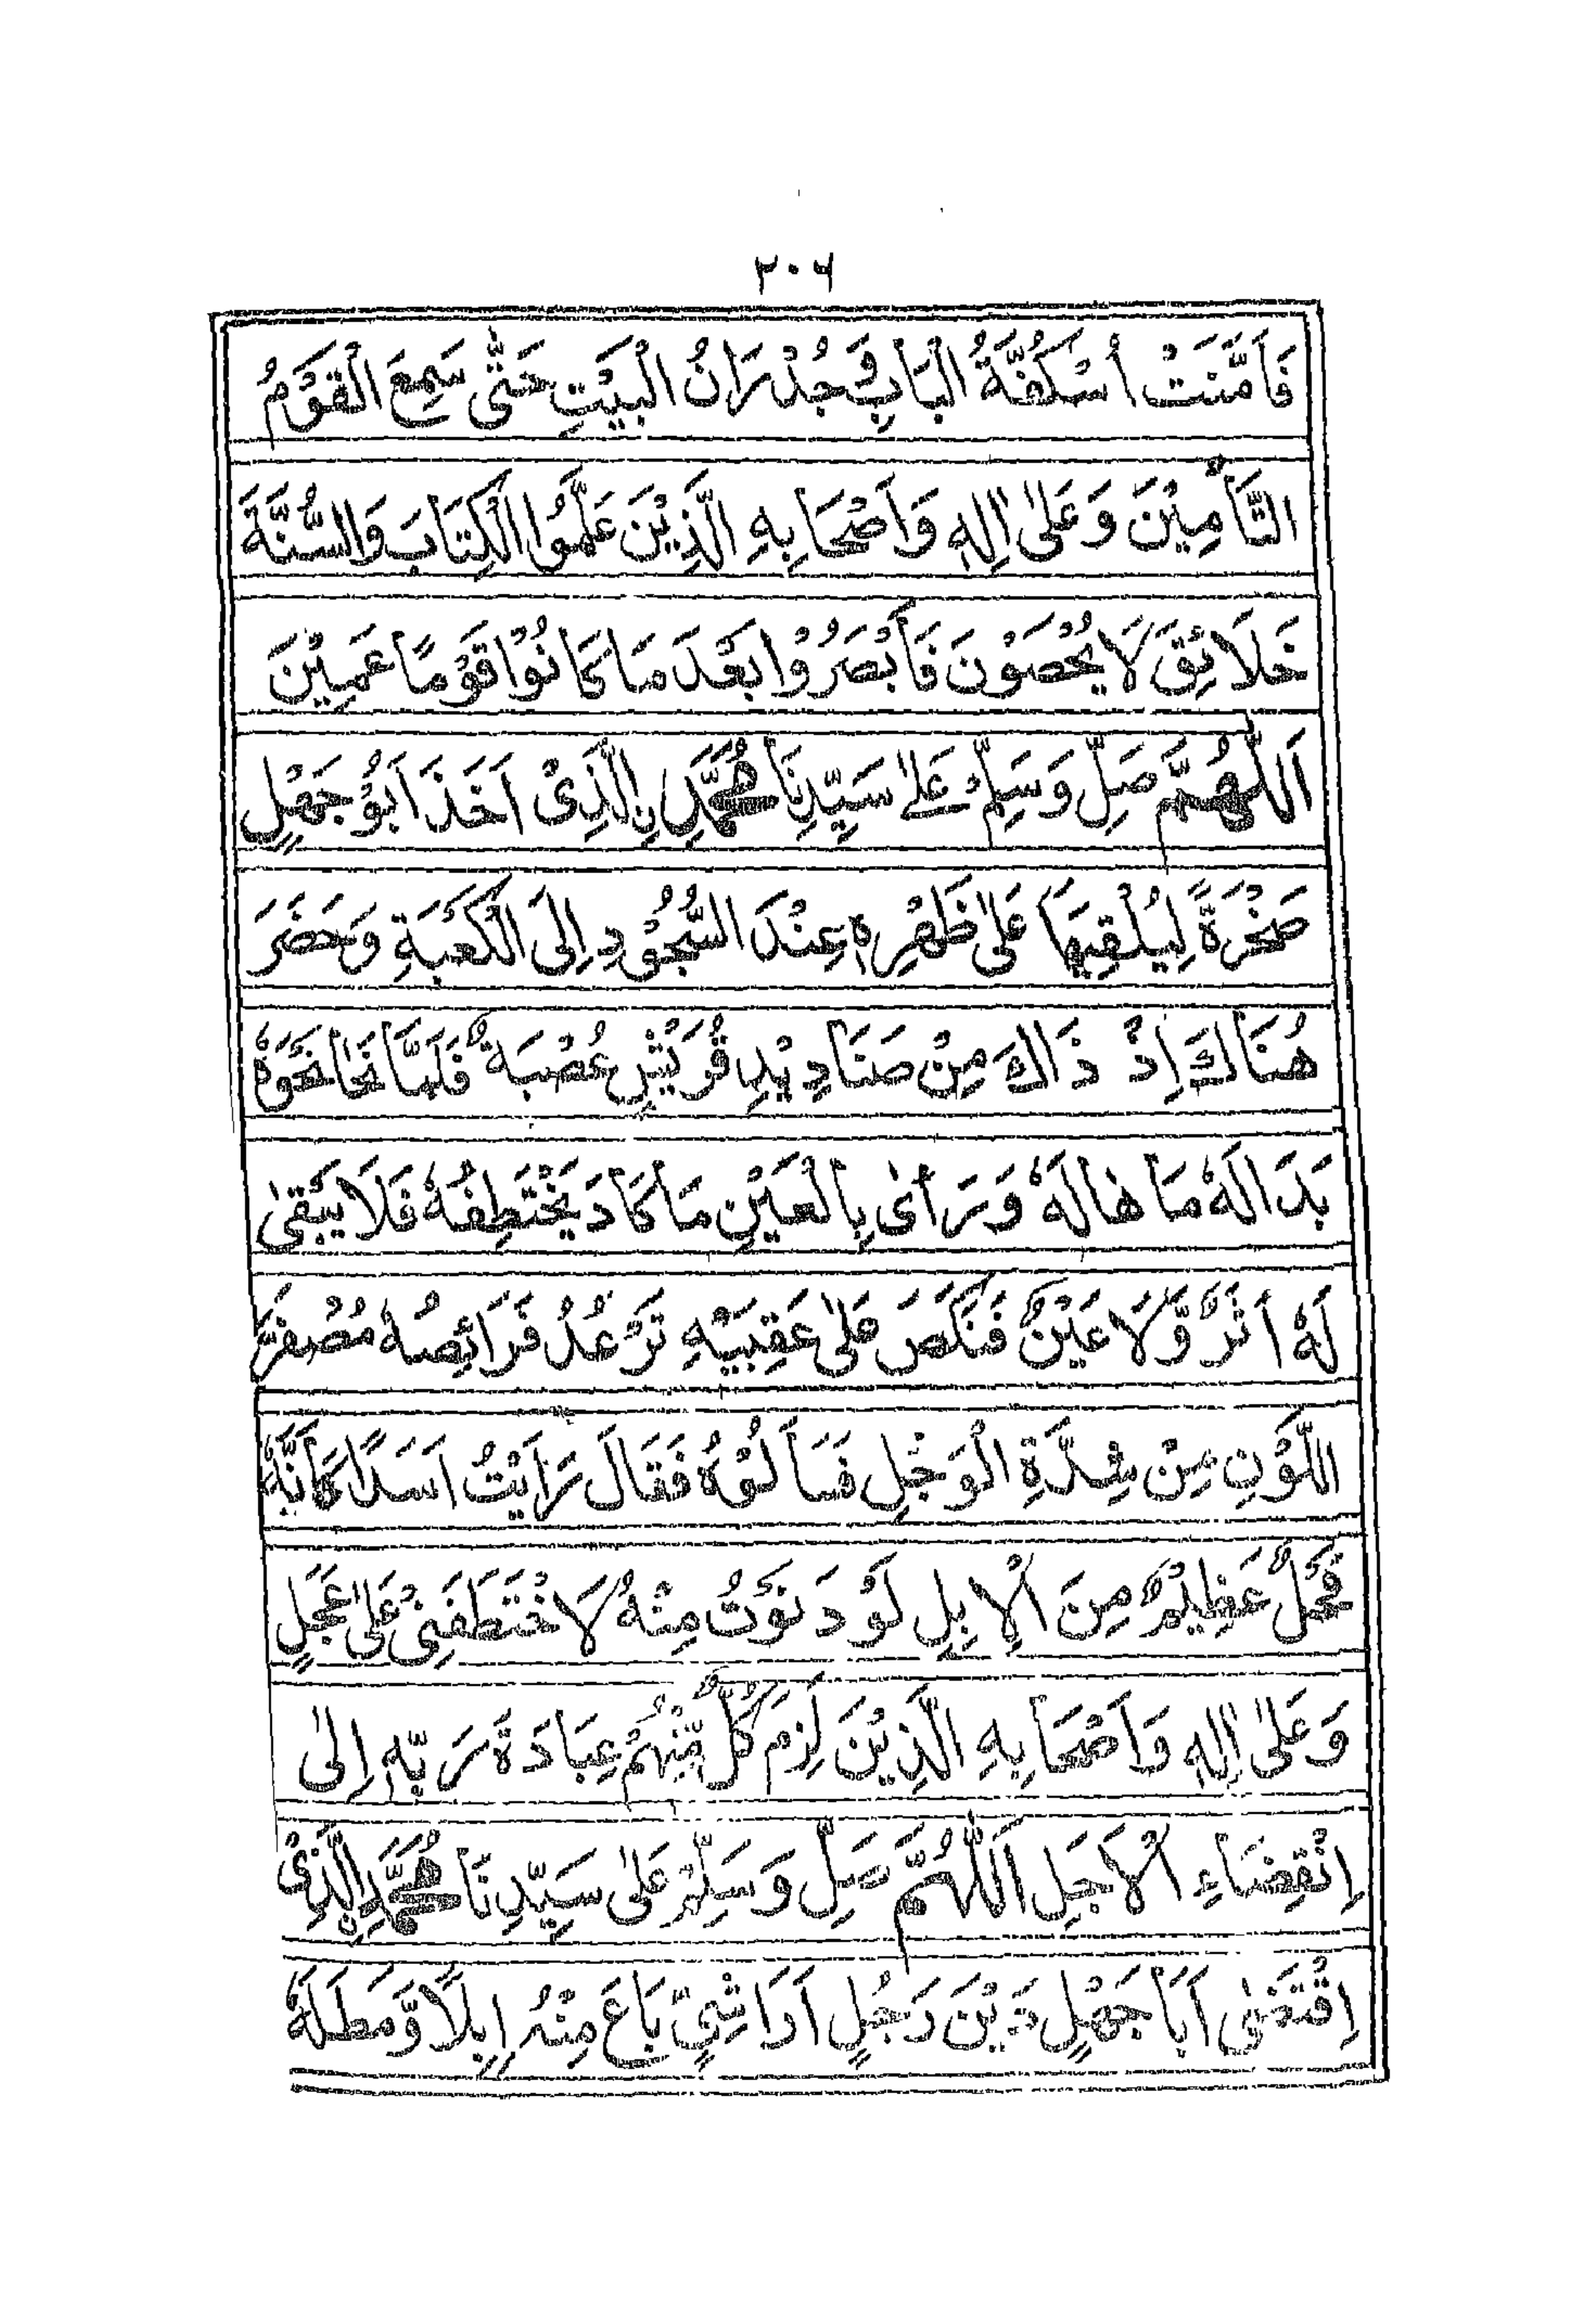 ٢٠٦
فَاَمَّنَتْ اُسْكُفَّةُ الْبَابِ وَجُدْرَانُ الْبَيْتِ حَتّٰى سَمِعَ الْقَوْمُ
التَّأْمِيْنَ وَعَلٰى اٰلِهٖ وَاَصْحَابِهِ الَّذِيْنَ عَلَّمُوا الْكِتَابَ وَالسُّنَّةَ
خَلَائِقَ لَا يُحْصَوْنَ فَأَبْصَرُوْا بَعْدَ مَا كَانُوْا قَوْمًا عَمِيْنَ
اَللّٰهُمَّ صَلِّ وَسَلِّمْ عَلٰى سَيِّدِنَا مُحَمَّدِنِ الَّذِىْ اَخَذَ اَبُوْ جَهْلٍ
صَخْرَةً لِيُلْقِيَهَا عَلٰى ظَهْرِهٖ عِنْدَ السُّجُوْدِ اِلَى الْكَعْبَةِ وَحَضَرَ
هُنَاكَ اِذْ ذَاكَ مِنْ صَنَادِيْدِ قُرَيْشٍ عُصْبَةٌ فَلَمَّا نَحَا نَحْوَهٗ
بَدَا لَهٗ مَا هَالَهٗ وَرَأٰى بِالْعَيْنِ مَا كَادَ يَخْتَطِفُهٗ فَلَا يَبْقٰى
لَهٗ اَثَرٌ وَّلَا عَيْنٌ فَنَكَصَ عَلٰى عَقِبَيْهِ تَرْعُدُ فَرَائِصُهٗ مُصْفَرَّ
اللَّوْنِ مِنْ شِدَّةِ الْوَجْلِ فَسَأَلُوْهُ فَقَالَ رَاَيْتُ اَسَدًا كَاَنَّهٗ
فَحْلٌ عَظِيْمٌ مِنَ الْاِبِلِ لَوْ دَنَوْتُ مِنْهُ لَاخْتَطَفَنِىْ عَلٰى عَجَلٍ
وَعَلٰى اٰلِهٖ وَاَصْحَابِهِ الَّذِيْنَ لَزِمَ كُلٌّ مِّنْهُمْ عِبَادَةَ رَبِّهٖ اِلٰى
اِنْقِضَاءِ الْاَجَلِ اَللّٰهُمَّ صَلِّ وَسَلِّمْ عَلٰى سَيِّدِنَا مُحَمَّدِنِ الَّذِىْ
اِقْتَضٰى اَبَا جَهْلٍ دَيْنَ رَجُلٍ اَرَاشِيٍّ بَاعَ مِنْهُ اِبِلًا وَّمَطَلَهٗ